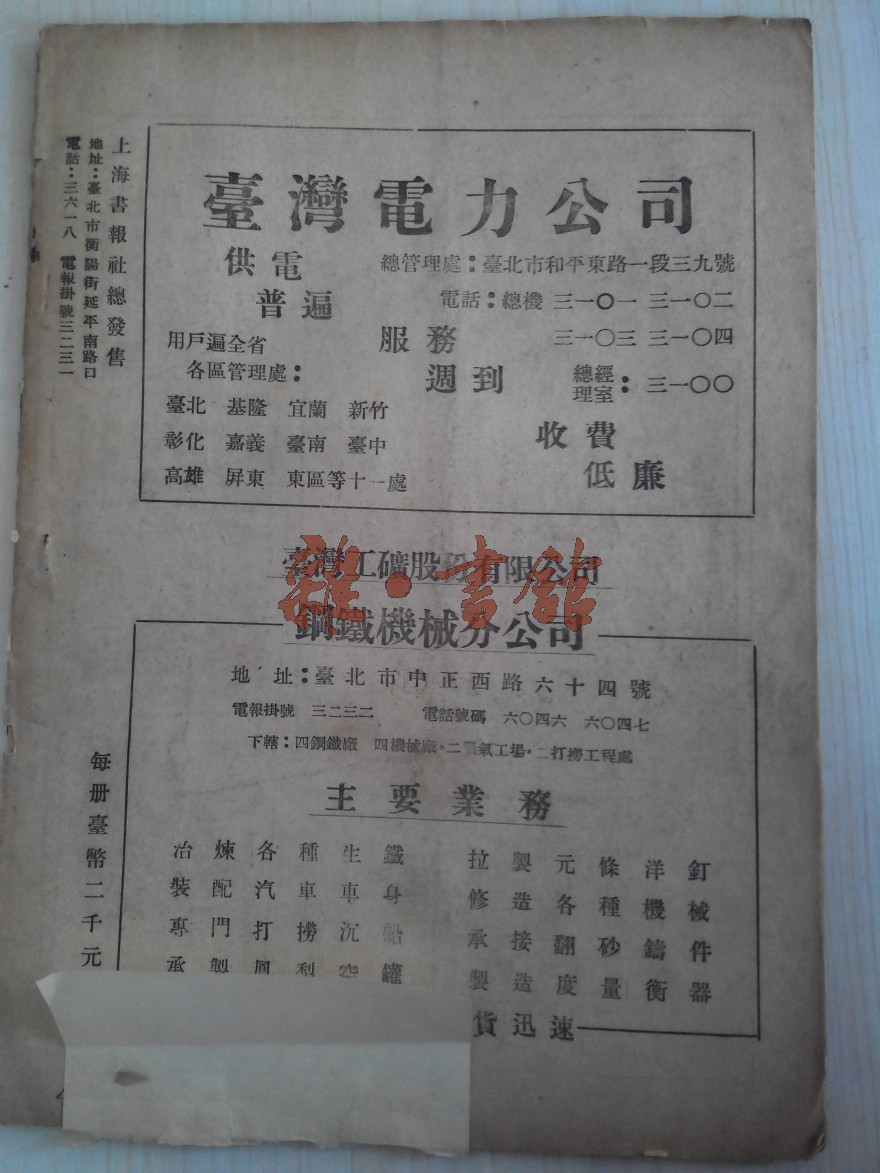 上海書報社總發售
地址：臺北市衡陽街延平南路口
電話：三六一八 電報掛號三二三一
臺灣電力公司
供電
普遍
總管理處：臺北市和平東路一段三九號
電話：總機 三一〇一 三一〇二
三一〇三 三一〇四
服務
週到
總經理室：三一〇〇
用戶遍全省
各區管理處：
臺北 基隆 宜蘭 新竹
彰化 嘉義 臺南 臺中
高雄 屏東 東區等十一處
收費
低廉
臺灣工礦股份有限公司
雜·書館
鋼鐵機械分公司
地址：臺北市中正西路六十四號
電報掛號 三二三二 電話號碼 六〇四六 六〇四七
下轄：四鋼鐵廠 四機械廠·二氣工場·二打撈工程處
主要業務
冶煉各種生鐵
裝配汽車車身
專門打撈沉船
承製空罐
拉製元條洋釘
修造各種機械
承接翻砂鑄件
製造度量衡器
貨迅速
每册臺幣二千元